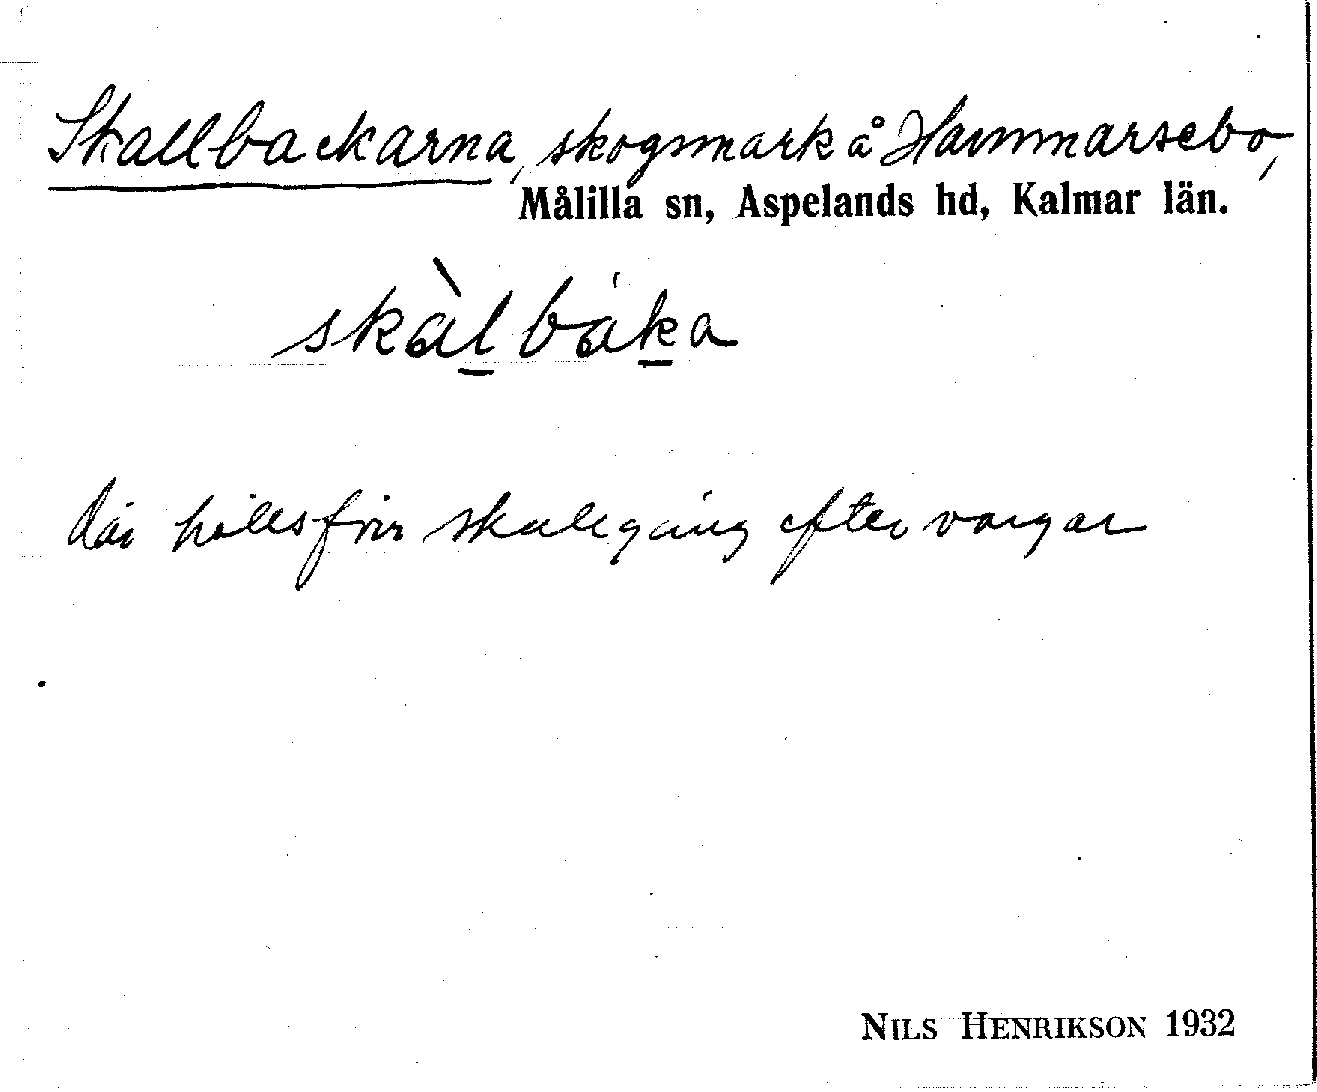 Skallbackarna, skogsmark å Hammarsebo,
Målilla sn, Aspelands hd, Kalmar län.
skàl̲bák̲a
där hölls förr skallgång efter vargar
NILS HENRIKSON 1932